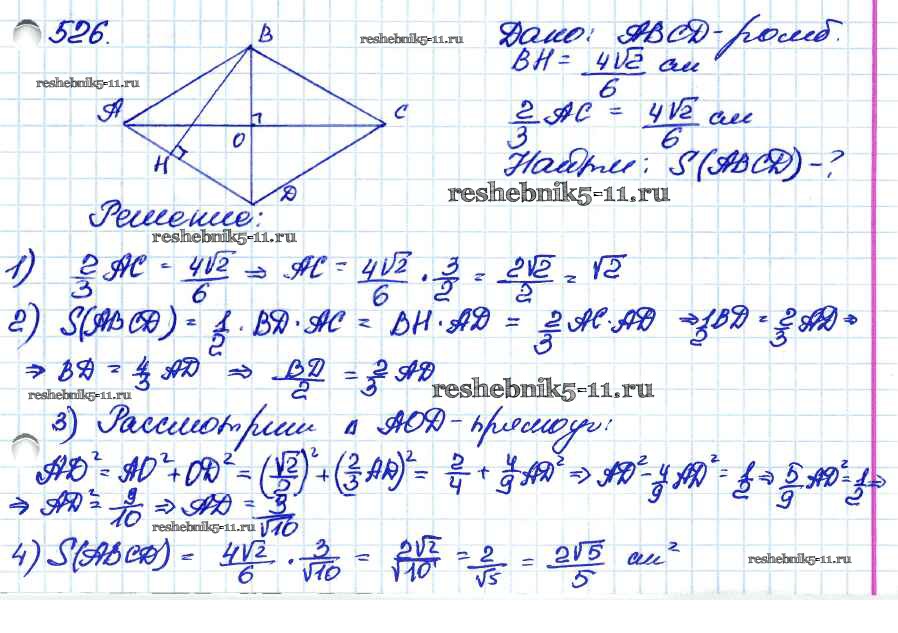 526.
reshebnik5-11.ru
Дано: ABCD - ромб.
BH = 4√2/6 см
2/3 AC = 4√2/6 см
Найти: S(ABCD) - ?
reshebnik5-11.ru
reshebnik5-11.ru
B
A
C
O
H
D
Решение:
reshebnik5-11.ru
1) 2/3 AC = 4√2/6 ⇒ AC = 4√2/6 · 3/2 = 2√2/2 = √2
2) S(ABCD) = 1/2 · BD · AC = BH · AD = 2/3 AC · AD ⇒ 1/2 BD = 2/3 AD ⇒
⇒ BD = 4/3 AD ⇒ BD/2 = 2/3 AD
reshebnik5-11.ru
reshebnik5-11.ru
3) Рассмотрим Δ AOD - прямоуг:
AD² = AO² + OD² = (√2/2)² + (2/3 AD)² = 2/4 + 4/9 AD² ⇒ AD² - 4/9 AD² = 1/2 ⇒ 5/9 AD² = 1/2 ⇒
⇒ AD² = 9/10 ⇒ AD = 3/√10
reshebnik5-11.ru
4) S(ABCD) = 4√2/6 · 3/√10 = 2√2/√10 = 2/√5 = 2√5/5 см²
reshebnik5-11.ru